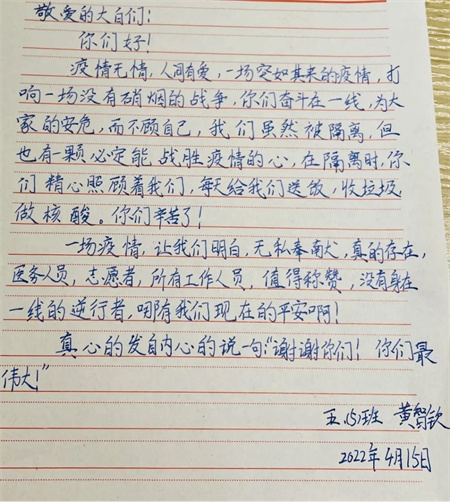 敬爱的大白们：
你们好！
疫情无情，人间有爱，一场突如其来的疫情，打
响一场没有硝烟的战争，你们奋斗在一线，为大
家的安危，而不顾自己，我们虽然被隔离，但
也有一颗必定能战胜疫情的心，在隔离时，你
们精心照顾着我们，每天给我们送饭，收垃圾
做核酸。你们辛苦了！
一场疫情，让我们明白，无私奉献，真的存在，
医务人员，志愿者，所有工作人员，值得称赞，没有身在
一线的逆行者，哪有我们现在的平安啊！
真心的发自内心的说一句：“谢谢你们！你们最
伟大！”
五(5)班 黄智钦
2022年4月15日